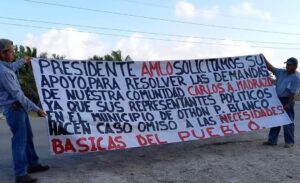 PRESIDENTE AMLO SOLICITAMOS SU
APOYO PARA RESOLVER LAS DEMANDAS
DE NUESTRA COMUNIDAD CARLOS A. MADRAZO
YA QUE SUS REPRESENTANTES POLITICOS
EN EL MUNICIPIO DE OTHON P. BLANCO
HACEN CASO OMISO A LAS NECESIDADES
BASICAS DEL PUEBLO.